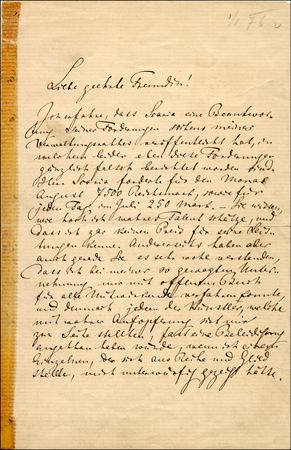 1/1 76
Liebe geehrte Freundin!
Ich erfahre, dass Scaria eine Beantwor-
tung seiner Forderungen seitens meines
Verwaltungsrathes veröffentlicht hat, in
welchem leider eben diese Forderungen
gänzlich falsch berichtet worden sind.
Scaria fordert für den Monat
August 7500 Reichsmark, sowie für
jeden Tag im Juli 250 Mark. – Sie wissen,
wie hoch ich wahres Talent schätze, und
dass ich gar keinen Preis für seine Leis-
tungen kenne. Andrerseits haben aber
auch gerade Sie es sehr wohl verstanden,
dass ich bei meiner so gewagten Unter-
nehmung nur mit offenem Buch
für alle Mitwirkende verfahren konnte,
und demnach jeden der Künstler, welche
mit wahrer Aufopferung sich mir
zur Seite stellten, fast eine Beleidigung
angethan haben würde, wenn ich einem
Einzelnen, der sich aus Reihe und Glied
stellte, mich unterwürfig gezeigt hätte.